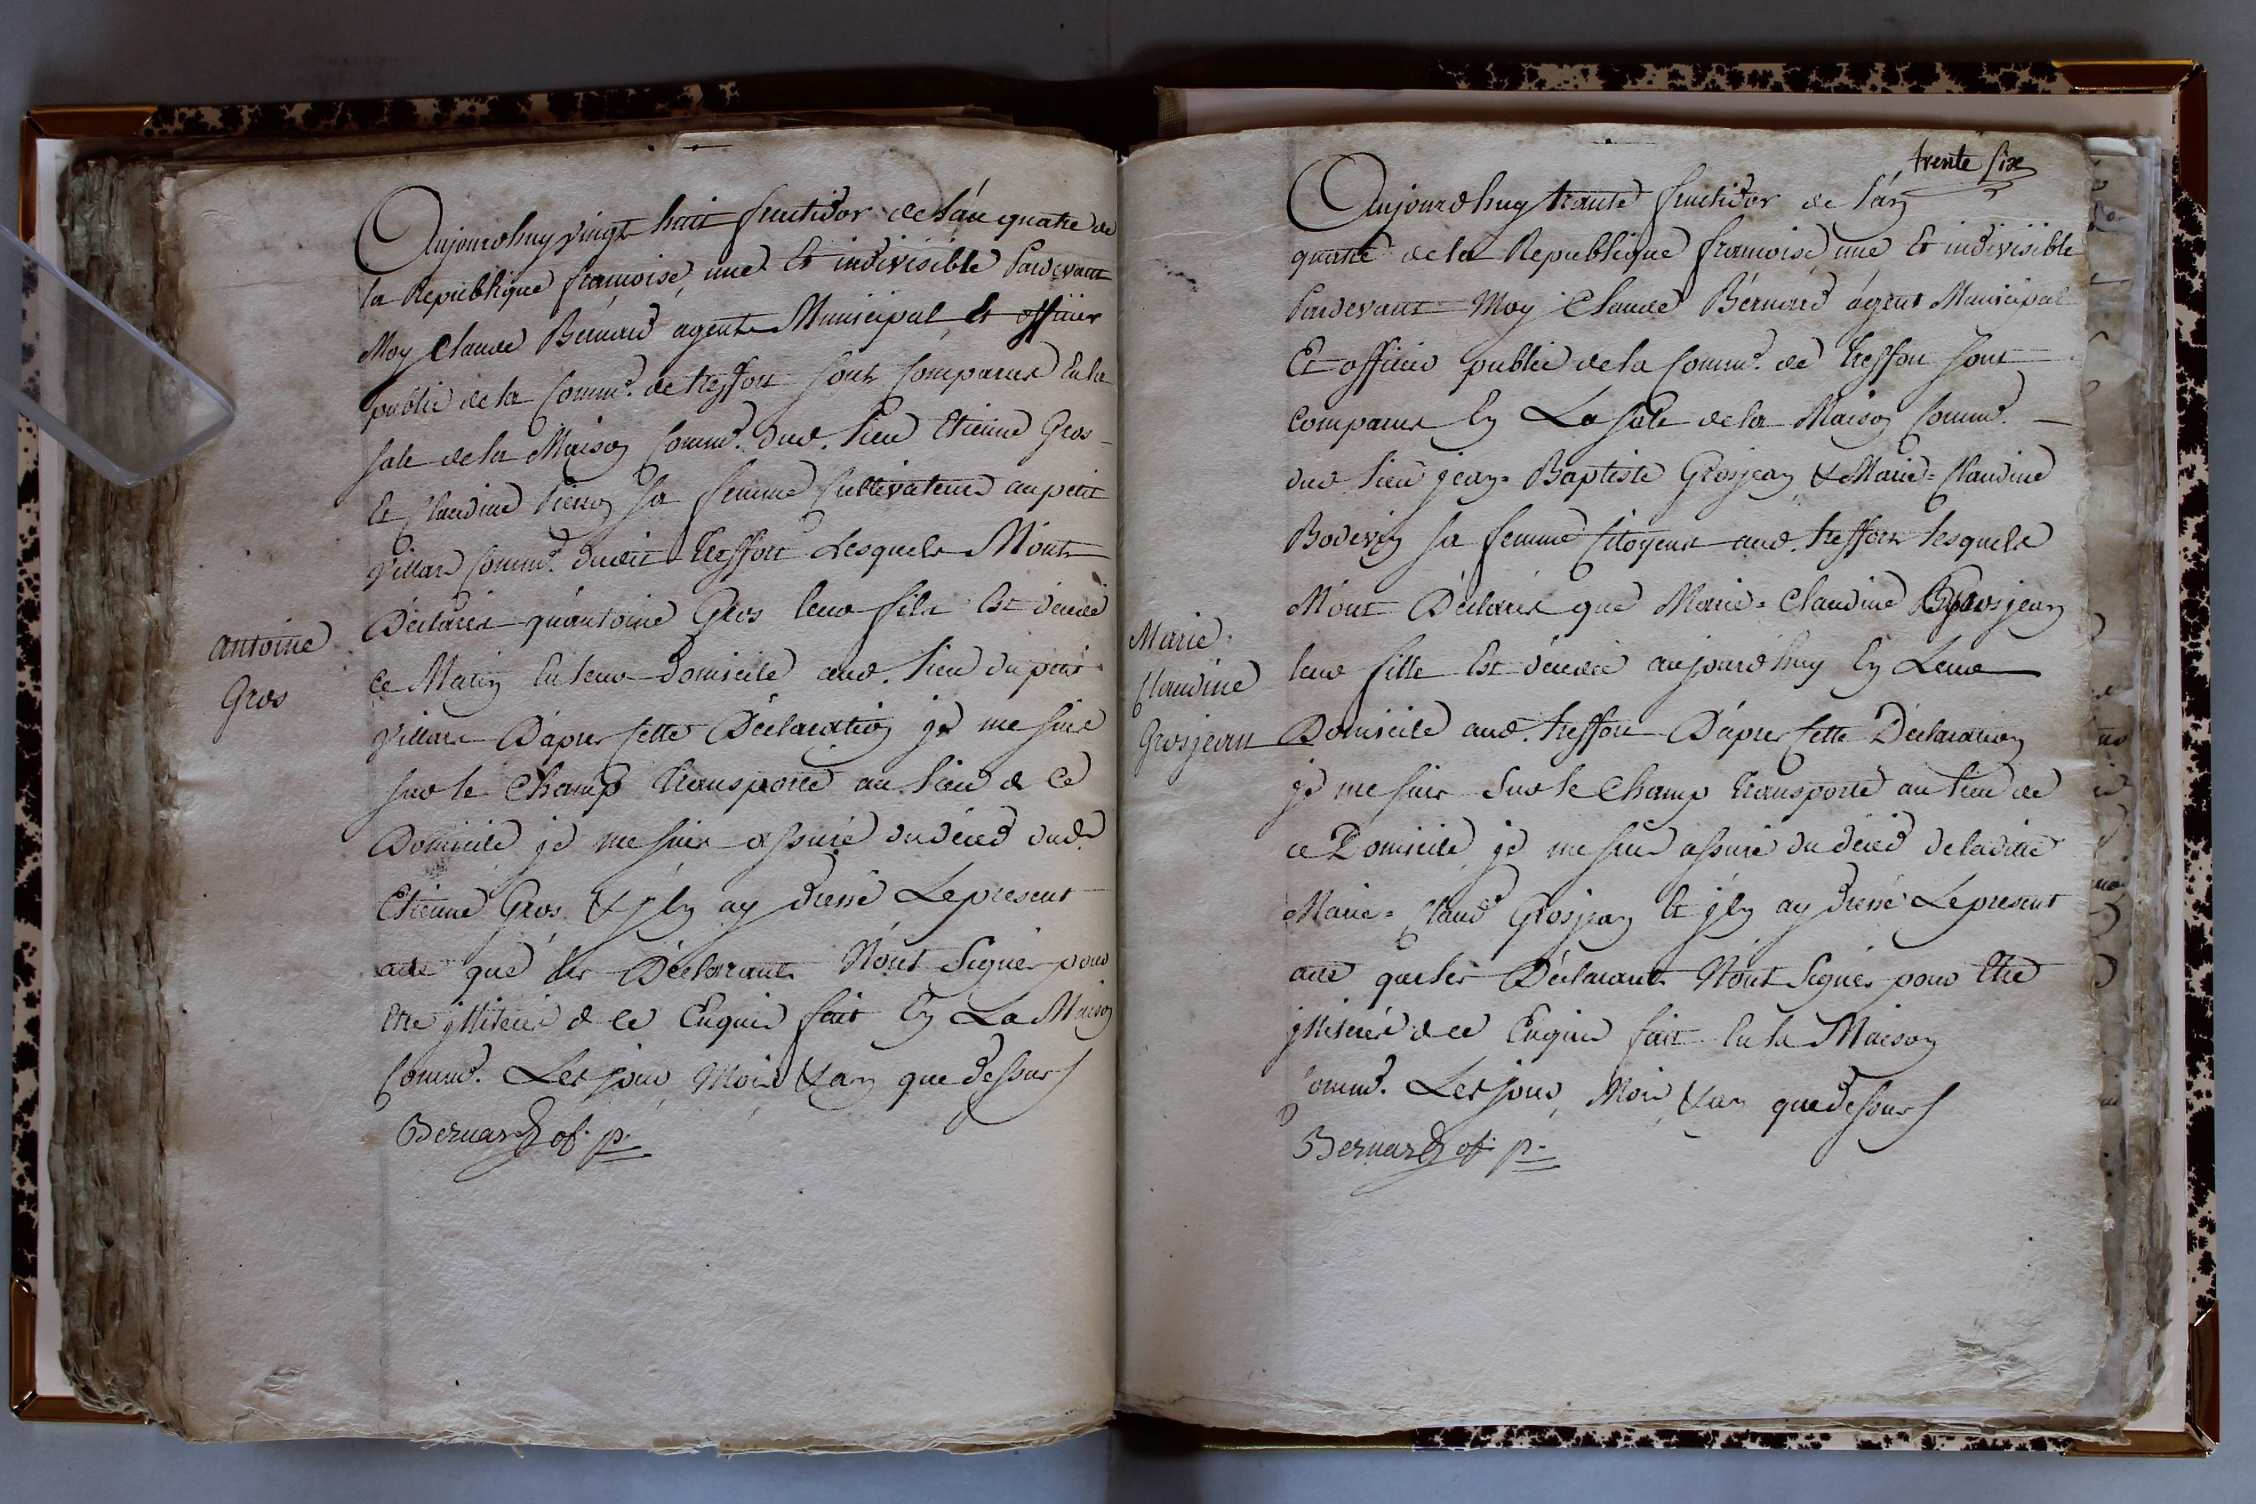 Aujourdhuy vingt huit fructidor de l'án quatre de
la Republique francoise, une Et indivisible Pardevant
Moy Claude Bernard agent Municipal Et officier
public de la Comm.e de treffort sont Comparus En la
sale de la Maison Comm.e dud. lieu Etienne Gros
Et Claudine Perron sa femme Cultivateurs au petit
Villars Comm.e dudit treffort Lesquels M'ont
Déclarés qu'antoine Gros leur fils Est décédé
Ce Matin En leur domicile aud. lieu du petit
Villars D'apres Cette Déclaration je me suis
sur le Champ transporté au lieu de Ce
Domicile je me suis assuré du décéd dud.
Etienne Gros & j'En ay dressé Le present
acte que les Déclarants N'ont Signés pour
Etre illiterés de Ce Enquis fait En La Maison
Comm.e Les jour, Mois & an que dessus
Bernard of. p.
antoine
Gros
trente six
Aujourdhuy trante fructidor de l'an
quatre de la Republique francoise, une Et indivisible
Pardevant Moy Claude Bérnard ágent Municipal
Et officier public de la Comm.e de treffort sont
Comparus En La sale de la Maison Comm.e
dud. lieu jean-Baptiste Grosjean & Marie-Claudine
Bodevin sa femme Citoyens aud. treffort lesquels
M'ont Déclarés que Marie-Claudine Grosjean
leur fille Est décédée aujourdhuy En Leur
Domicile aud. treffort D'apres Cette Déclaration
je me suis Sur le Champ transporté au lieu de
ce Domicile je me suis assuré du décéd de ladite
Marie-Claud.e Grosjean Et j'En ay dressé Le present
acte que les Déclarants N'ont Signés pour Etre
illiterés de ce Enquis fait En la Maison
Comm.e Les jour, Mois, & an que dessus
Bernard of. p.
Marie
Claudine
Grosjean